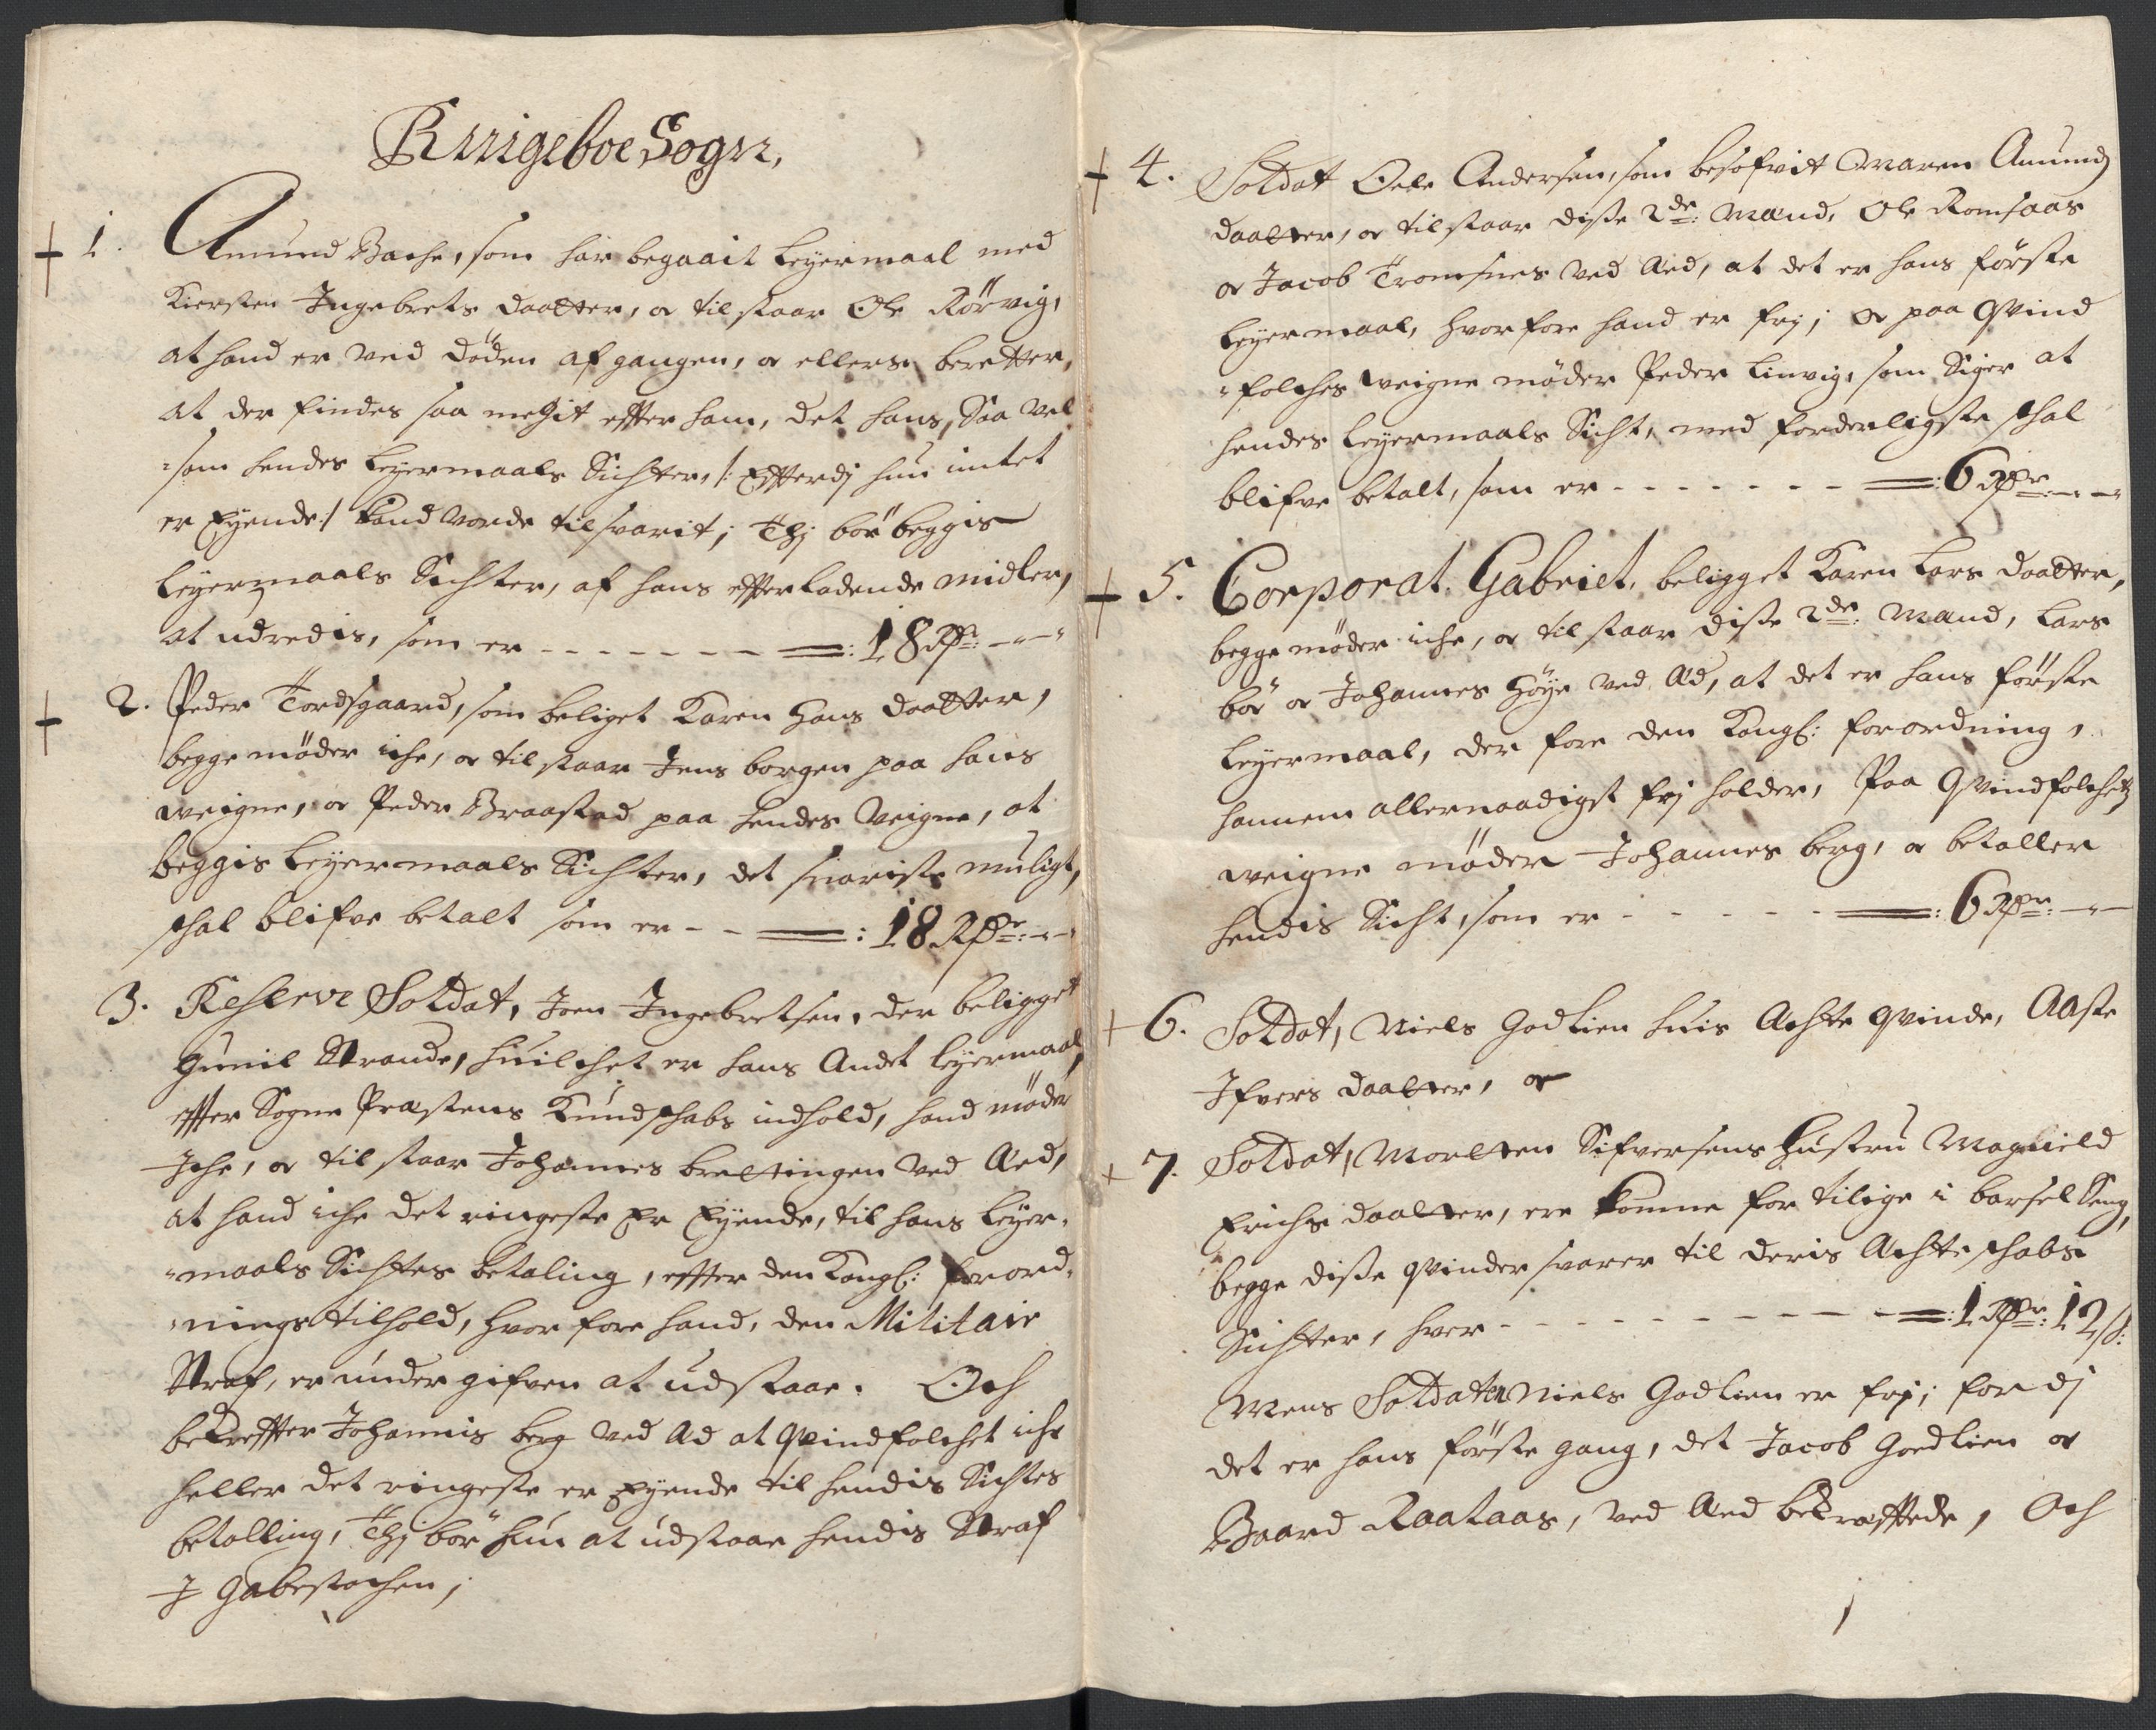 Ringeboe Sogn,
+ 1. Amund Bache, som har begaait Leyermaal med
Kiersten Ingebrets daatter, oc tilstaar Ole Rörvig,
at hand er ved döden afgangen, oc ellers beretter,
at der findes saa megit effter ham, det hans, Saa vel
-som hendes Leyermaals Sichter, /: Effterdj hun intet
er Eyende :/ kand vorde tilsvarit; Thj bör beggis
Leyermaals Sichter, af hans effterladende midler,
at udredis, som er - - - - - - - =: 18 Rdr: - - -
+ 2. Peder Tordsgaard, som beliget Karen Hans daatter,
begge möder iche, oc tilstaar Jens borgen paa hans
weigne, oc Peder Braastad paa hendes Veigne, at
beggis Leyermaals Sichter, det snariste muligt,
schal blifve betalt som er - - =: 18 Rdr: - -
3. Reserve Soldat, Joen Ingebretsen, der beligget
Gunil Strande, huilchet er hans Andet Leyermaal,
effter Sogne Præstens Kundschabs indhold, hand möder
Iche, oc tilstaar Johannes Brettingen ved Aed,
at hand iche det ringeste Er Eyende, til hans Leyer-
-maals Sichtes betaling, effter den Kongl: forord-
-nings tilhold, hvorfore hand, den Militair
Straf, er undergifven at udstaae. Och
bekreffter Johannis berg ved Aed at Qvindfolchet iche
heller det ringeste er Eyende til hendis Sichtes
betalling, Thj bör hun at udstaae hendis Straf
I Gabestochen;
+ 4. Soldat Ole Andersen, som besofvit Maren Amunds
daatter, oc tilstaar disse 2de: Mænd, Ole Romsaas
oc Jacob Tromsnes ved Aed, at det er hans förste
Leyermaal, hvorfore hand er frj; oc paa Qvind
-folches weigne möder Peder Linvig, som Siger at
hendes Leyermaals Sicht, med forderligste schal
blifve betalt, som er - - - - - - - =: 6 Rdr: - -
+ 5. Corporal. Gabriel, beligget Karen Lars daatter,
begge möder iche, oc tilstaar disse 2de: Mænd, Lars
bör oc Johannes Höye ved Aed, at det er hans förste
Leyermaal, der fore den Kongl: forordning,
hannem allernaadigst frj holder, Paa Qvindfolchetz
weigne möder Johannes berg, oc betaller
hendis Sicht, som er - - - - - =: 6 Rdr: - -
+ 6. Soldat, Niels Godlien huis Achte qvinde, Aaste
Ifvers daatter, oc
+ 7. Soldat, Morten Sifversens Hustru Magnild
Erichs daatter, ere komne for tilige i barsel Seng,
begge disse qvinder svarer til deris Achteschabs
Sichter, hver - - - - - - - - =: 1 Rdr: 12 s:
Mens Soldaten Niels Godlien er frj; fordj
det er hans förste gang, det Jacob Goedlien oc
Baard Raataas, ved Aed bekræfftede, Och